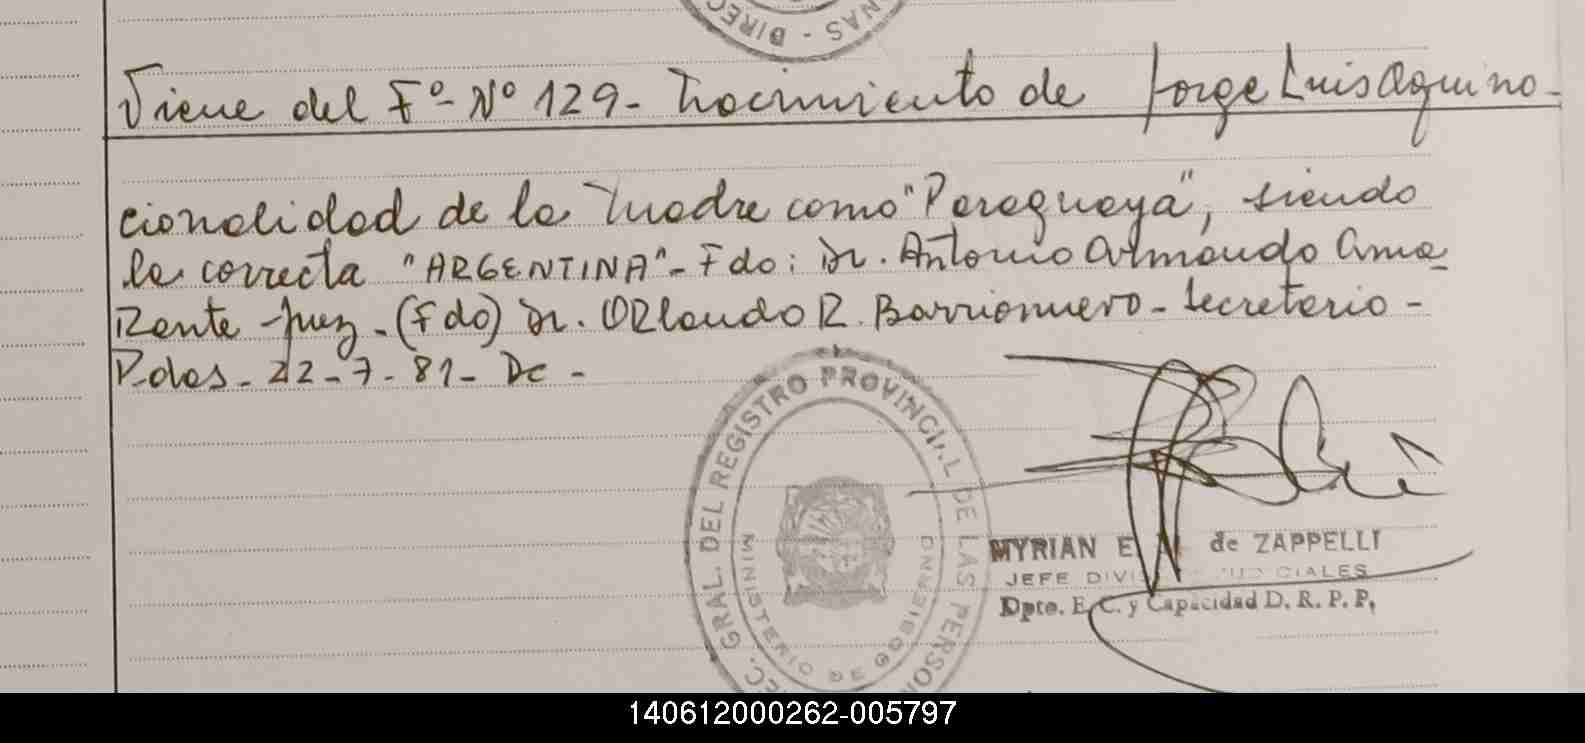 NAS - DIREC
Viene del Fº- Nº 129- Nacimiento de Jorge Luis Aquino-
cionalidad de la Madre como "Paraguaya", siendo
la correcta "ARGENTINA"- Fdo: Dr. Antonio Armando Ama
Rante -Juez-(Fdo) Dr. ORlando R. Barrionuevo-Secretario-
P-das- 22-7-81- Dc -
DIREC. GRAL. DEL REGISTRO PROVINCIAL DE LAS PERSON
MINISTERIO DE GOBIERNO
MYRIAN E de ZAPPELLI
JEFE
Dpto. E. C. y Capacidad D. R. P. P.
140612000262-005797